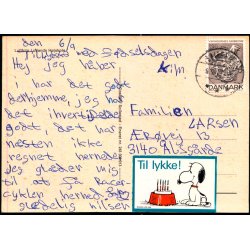 den 6/9
Tillykke med Fødselsdagen
Hej jeg håber
Kilm.
i har det godt
derhjemme, jeg har
det i hvertifald
godt, det har
næsten ikke
regnet herned
jeg glæder mig
til at få Racer-
cyklen herned
glædelig hilsen
DANMARK
Familien
LARSEN
Ærøvej 13
3140 Ålsgårde
Til lykke!